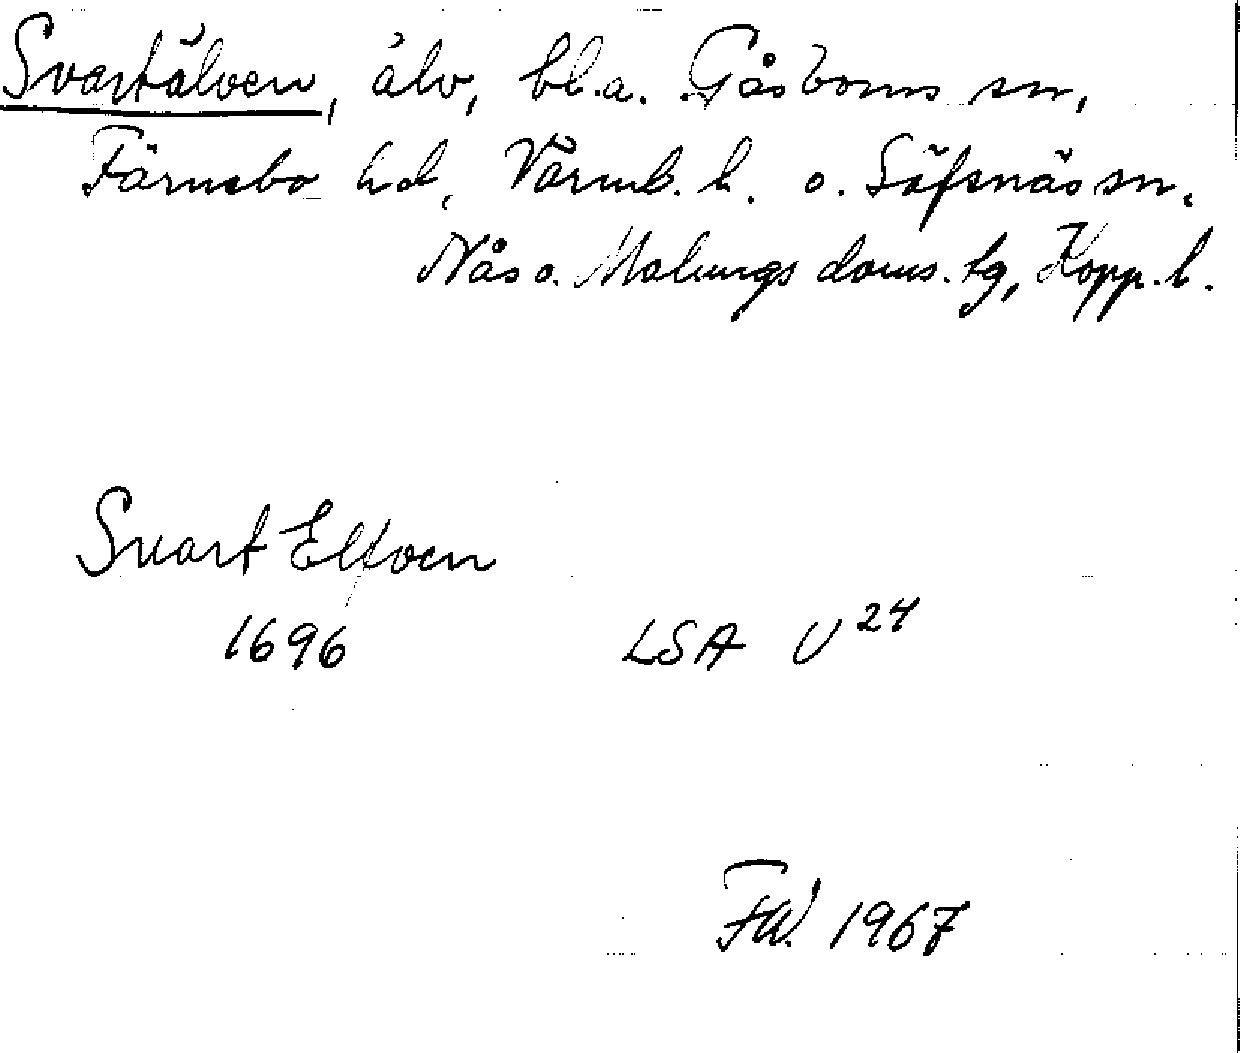 Svartälven, älv, bl.a. Gåsborns sn,
Färnebo hd, Värml. l. o. Säfsnäs sn.
Nås o. Malungs doms. tg, Kopp. l.
Svart Elfven
1696 LSA U24
FW. 1967